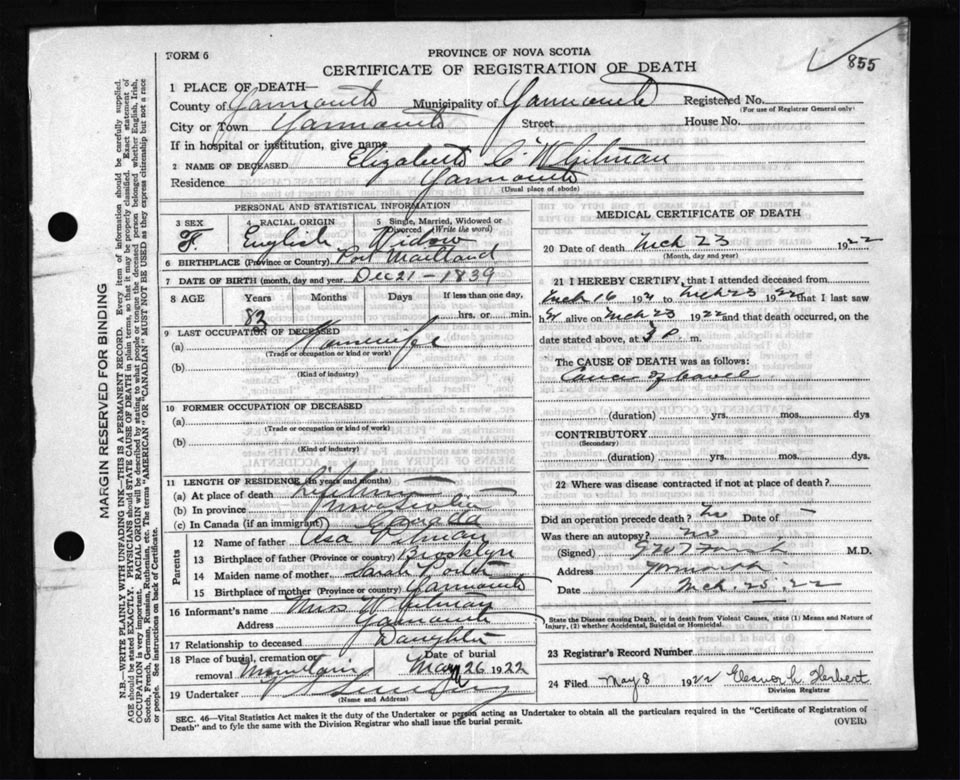 FORM 6
PROVINCE OF NOVA SCOTIA
855
CERTIFICATE OF REGISTRATION OF DEATH
1 PLACE OF DEATH—
County of Yarmouth Municipality of Yarmouth Registered No.
(For use of Registrar General only)
City or Town Yarmouth Street House No.
If in hospital or institution, give name
2 NAME OF DECEASED Elizabeth C Whitman
Residence Yarmouth
(Usual place of abode)
PERSONAL AND STATISTICAL INFORMATION
3 SEX 4 RACIAL ORIGIN 5 Single, Married, Widowed or Divorced (Write the word)
F. English Widow
6 BIRTHPLACE (Province or Country) Port Maitland
7 DATE OF BIRTH (month, day and year) Dec 21 - 1839
8 AGE Years Months Days If less than one day,
83 hrs. or min.
9 LAST OCCUPATION OF DECEASED
(a) Housewife
(Trade or occupation or kind of work)
(b)
(Kind of industry)
10 FORMER OCCUPATION OF DECEASED
(a)
(Trade or occupation or kind of work)
(b)
(Kind of industry)
11 LENGTH OF RESIDENCE (In years and months)
(a) At place of death Lifetime
(b) In province Nova Scotia
(c) In Canada (if an immigrant) Canada
Parents
12 Name of father Asa Pitman
13 Birthplace of father (Province or country) Brooklyn
14 Maiden name of mother Sarah Porter
15 Birthplace of mother (Province or country) Yarmouth
16 Informant's name Miss Whitman
Address Yarmouth
17 Relationship to deceased Daughter
18 Place of burial, cremation or removal Mountain Date of burial May 26 1922
19 Undertaker
(Name and Address)
MEDICAL CERTIFICATE OF DEATH
20 Date of death Mch 23 1922
(Month, day and year)
21 I HEREBY CERTIFY, that I attended deceased from
Mch 16 192 to Mch 23 1922 that I last saw
her alive on Mch 23 1922 and that death occurred, on
date stated above, at P. m.
The CAUSE OF DEATH was as follows:
Cancer of bowel
(duration) yrs. mos. dys
CONTRIBUTORY
(Secondary)
(duration) yrs. mos. dys.
22 Where was disease contracted if not at place of death?
Did an operation precede death? No Date of -
Was there an autopsy? no
(Signed) M.D.
Address Yarmouth
Date Mch. 25. 22
State the Disease causing Death, or in death from Violent Causes, state (1) Means and Nature of Injury, (2) whether Accidental, Suicidal or Homicidal.
23 Registrar's Record Number
24 Filed May 8 1922 Eleanor L. Herbert
Division Registrar
SEC. 46—Vital Statistics Act makes it duty of the Undertaker or person acting as Undertaker to obtain all the particulars required in the "Certificate of Registration of
Death" and to fyle the same with the Division Registrar who shall issue the burial permit.
(OVER)
MARGIN RESERVED FOR BINDING
N.B.—WRITE PLAINLY WITH UNFADING INK—THIS IS A PERMANENT RECORD. Every item of information should be carefully supplied.
AGE should be stated EXACTLY. PHYSICIANS should STATE CAUSE OF DEATH in plain terms, so that it may be properly classified. Exact statement of
OCCUPATION is very important. RACIAL ORIGIN will be described by stating to what people or tongue the deceased person belonged whether English, Irish,
Scotch, French, German, Russian, Ruthenian, etc. The terms "AMERICAN" OR "CANADIAN" MUST NOT BE USED as they express citizenship but not a race
or people. See instructions on back of Certificate.